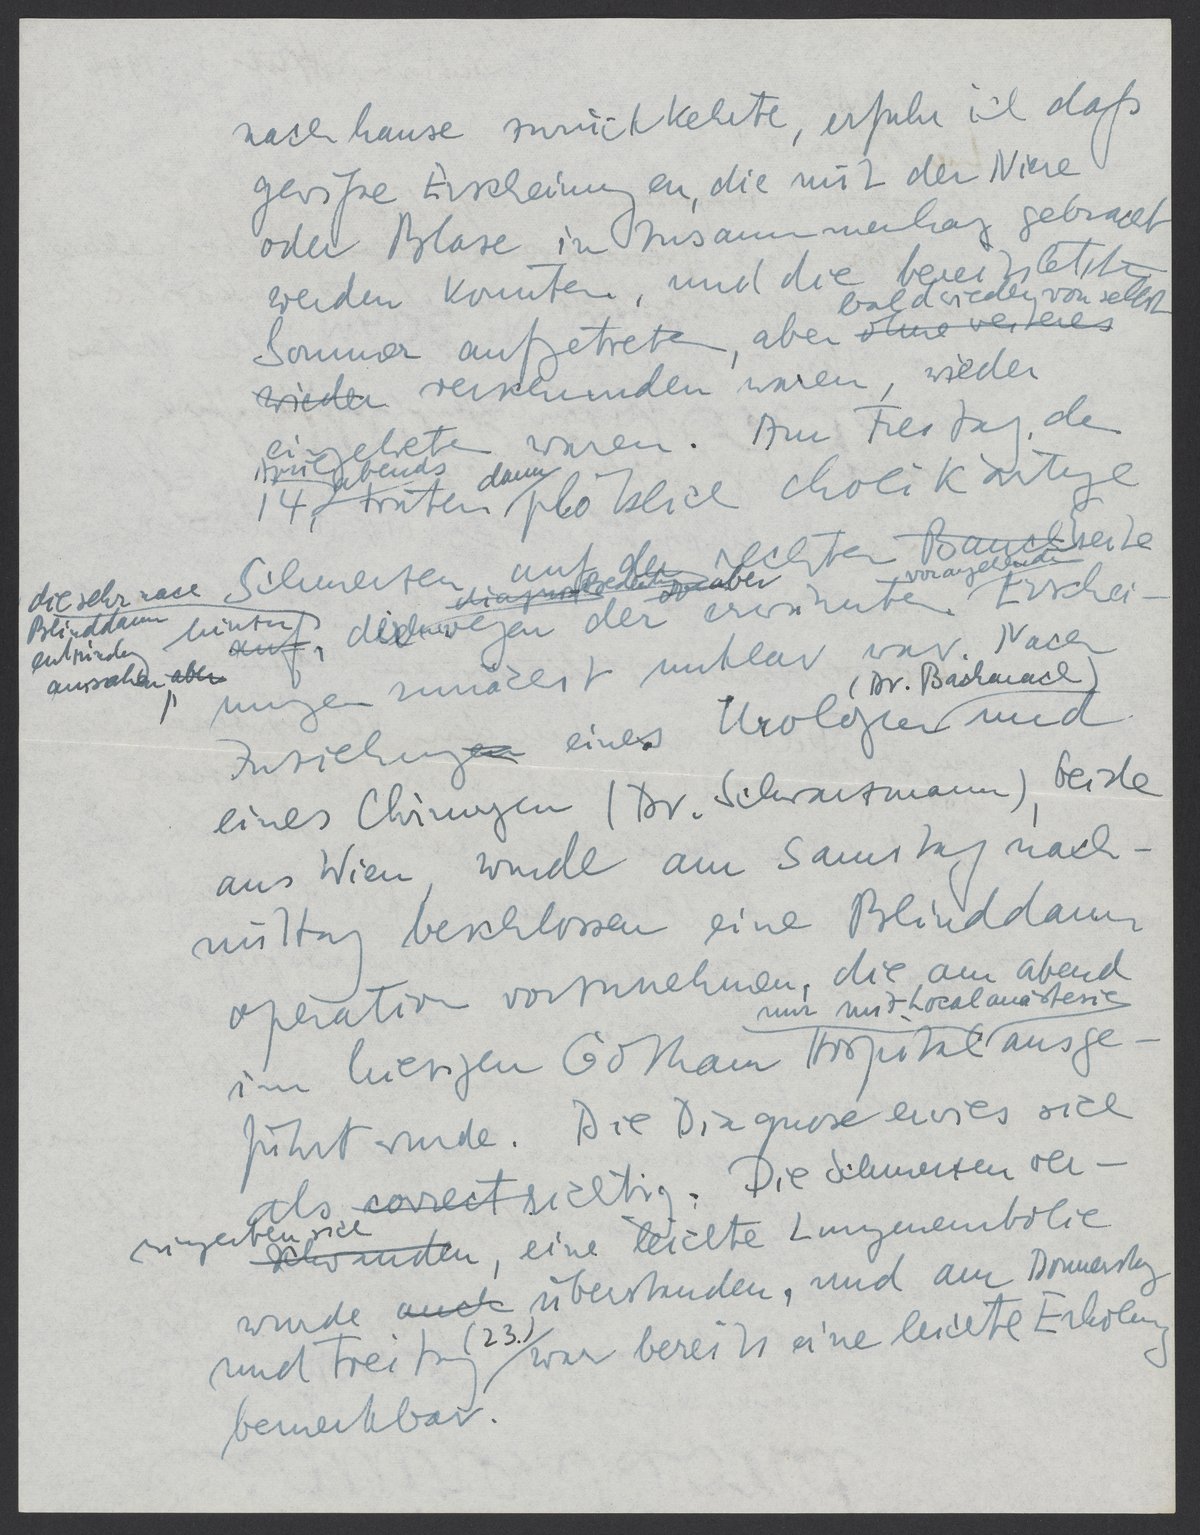 nach hause zurückkehrte, erfuhr ich daß
gewiße Erscheinungen, die mit der Niere
oder Blase in Zusammenhag gebracht
werden konnten, und die bereits letzten
bald wieder von selbst
Sommer aufgetreten, aber ohne weiteres
wieder verschwunden waren, wieder
eingetreten waren. Am Freitag, den
April abends dann
14. traten plötzlich cholikartige
Schmerzen auf der rechten Bauchseite
die sehr nach
Blinddarm
entzündung
aussahen, aber
aber vorangehenden
hinten auf, die wegen der erwähnten Erschei-
nungen zunächst unklar war. Nach
(Dr. Bachrach)
Zuziehungen eines Urologen und
eines Chirurgen (Dr. Schwarzmann), beide
aus Wien, wurde am Samstag nach-
mittag beschlossen eine Blinddarm
operation vorzunehmen, die am abend
nur mit Localanästesie
im hiesigen Gotham Hospital ausge-
führt wurde. Die Diagnose erwies sich
als correct richtig. Die Schmerzen ver-
ringerten sich
schwanden, eine leichte Lungenembolie
wurde auch überstanden, und am Donnerstag
und Freitag (23.) war bereits eine leichte Erholung
bemerkbar.